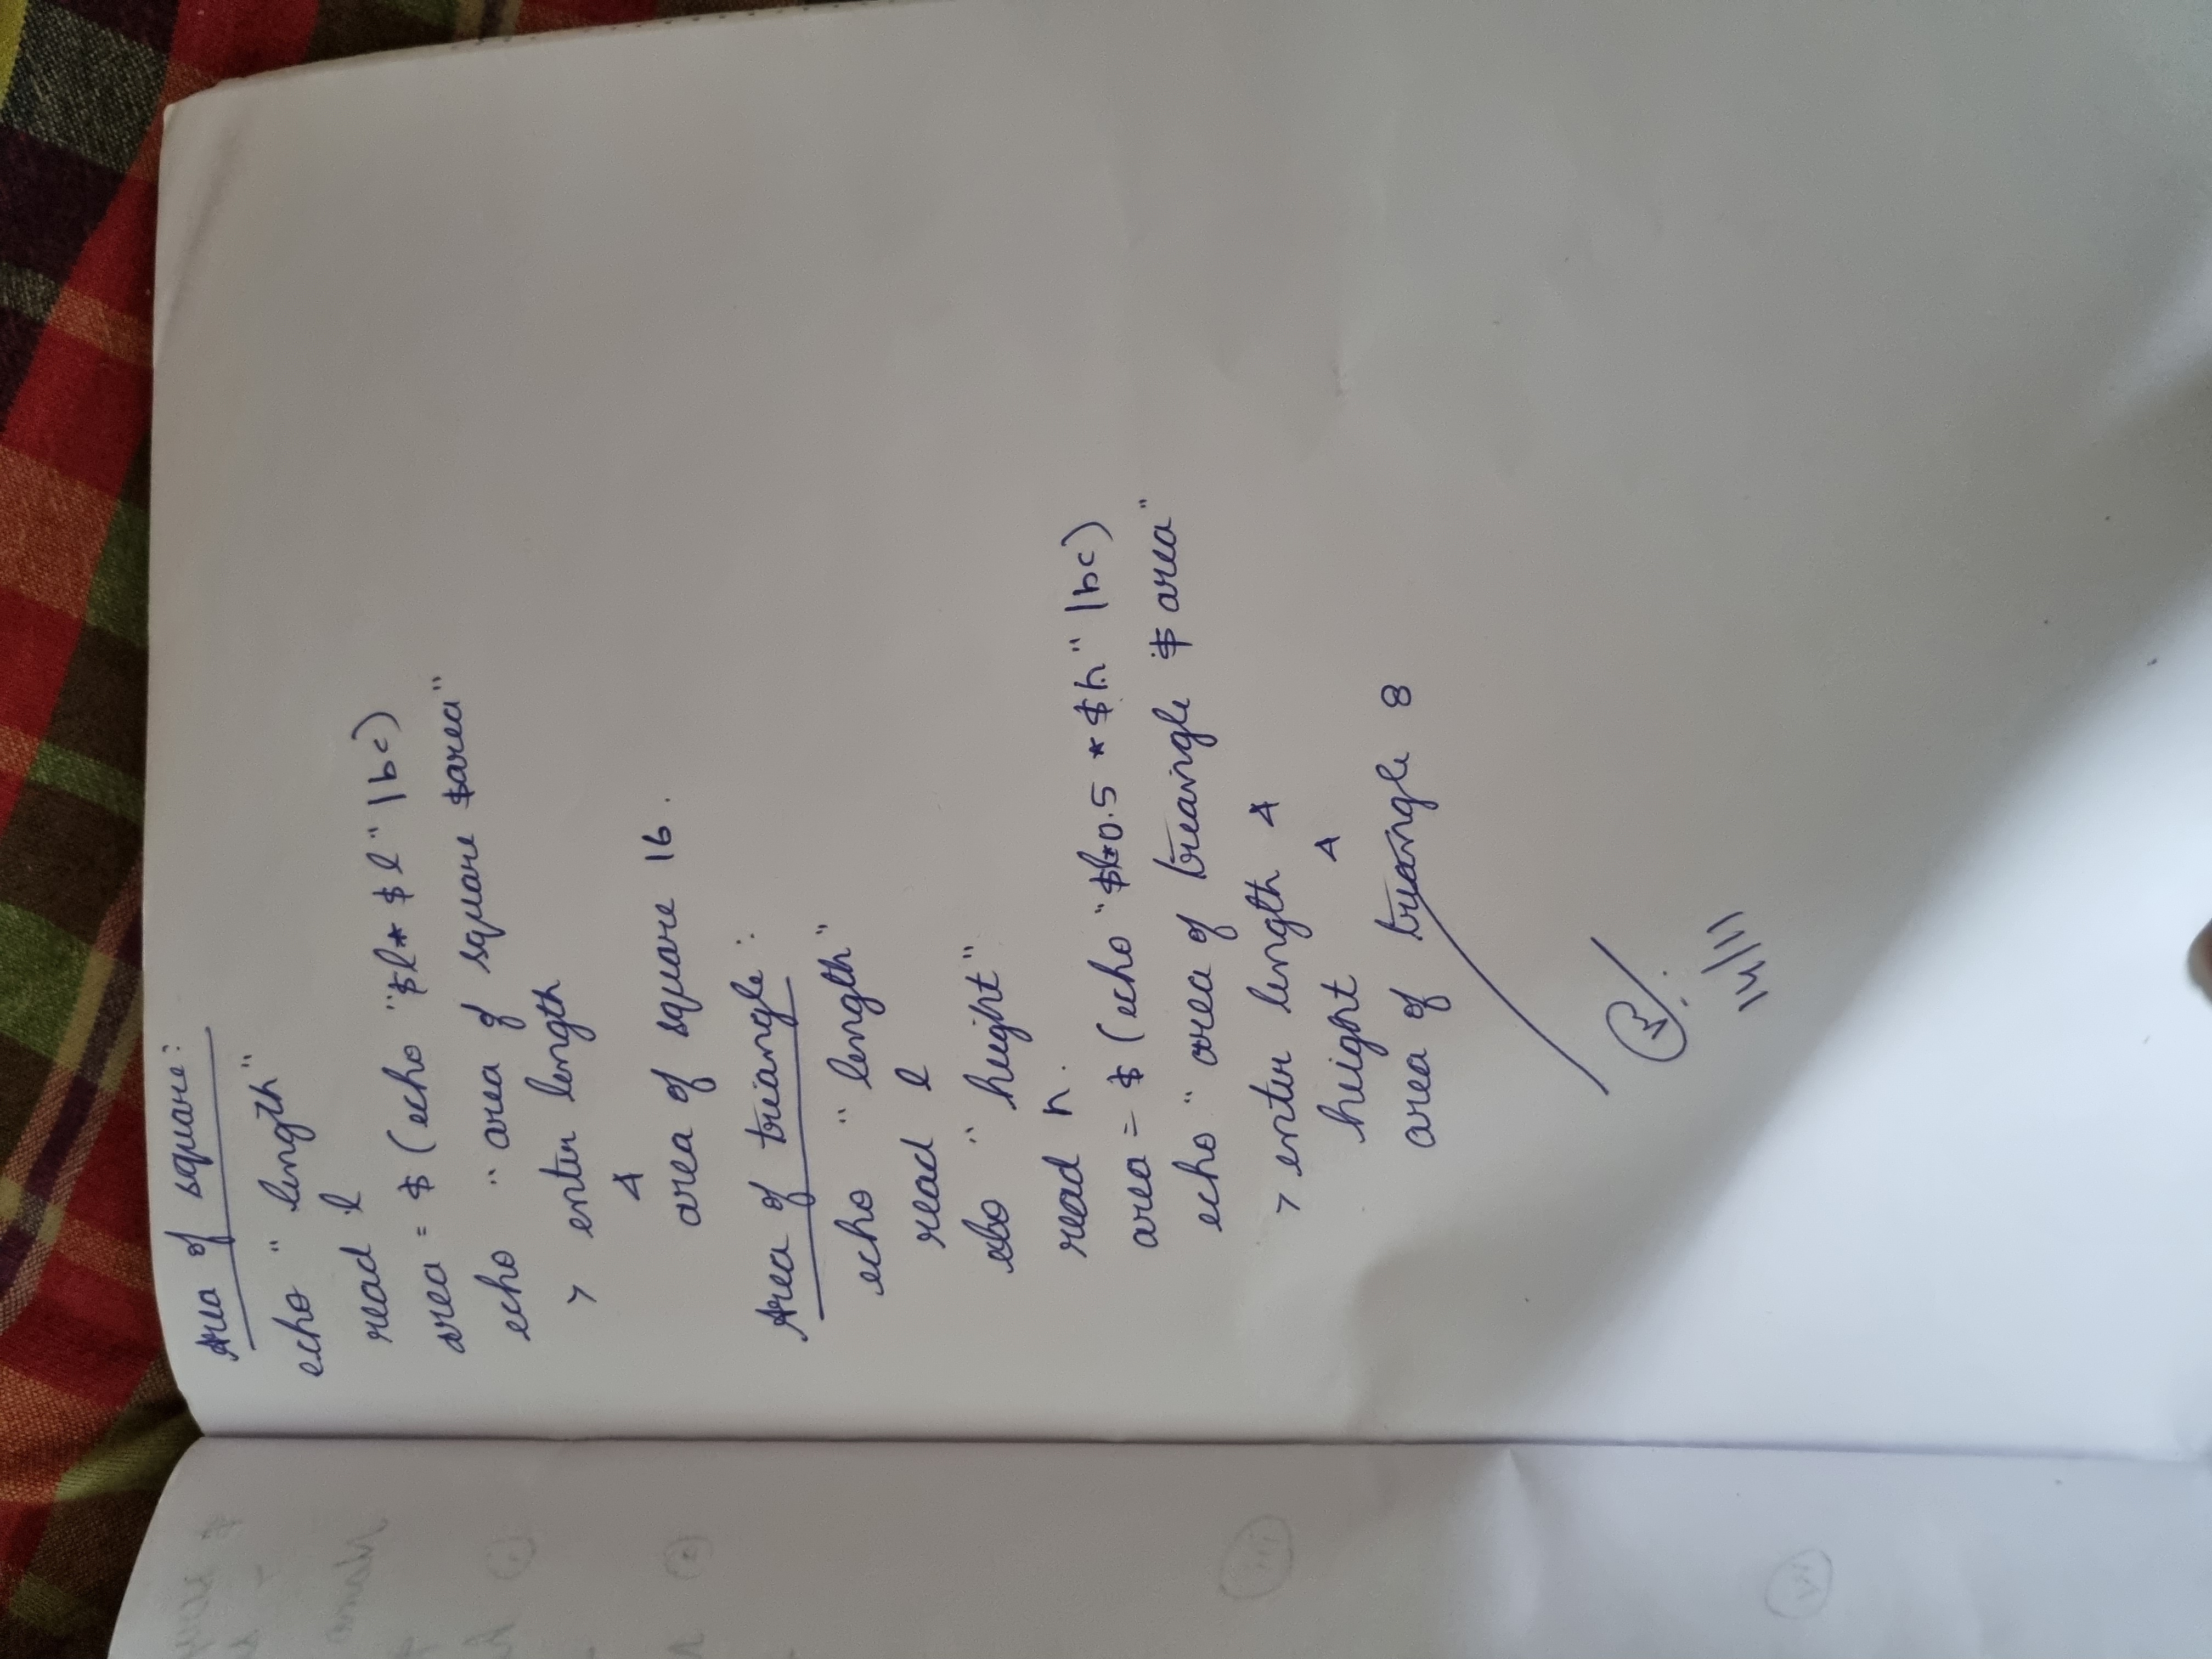 Area of square:
echo "length"
read l
area = $ (echo "$l* $l" | bc)
echo "area of square $area"
> enter length
4
area of square 16.
Area of triangle:
echo "length"
read l
echo "height"
read h.
area = $ (echo "$l*0.5 * $h" | bc)
echo "area of triangle $ area"
> enter length 4
height 4
area of triangle 8
14/11